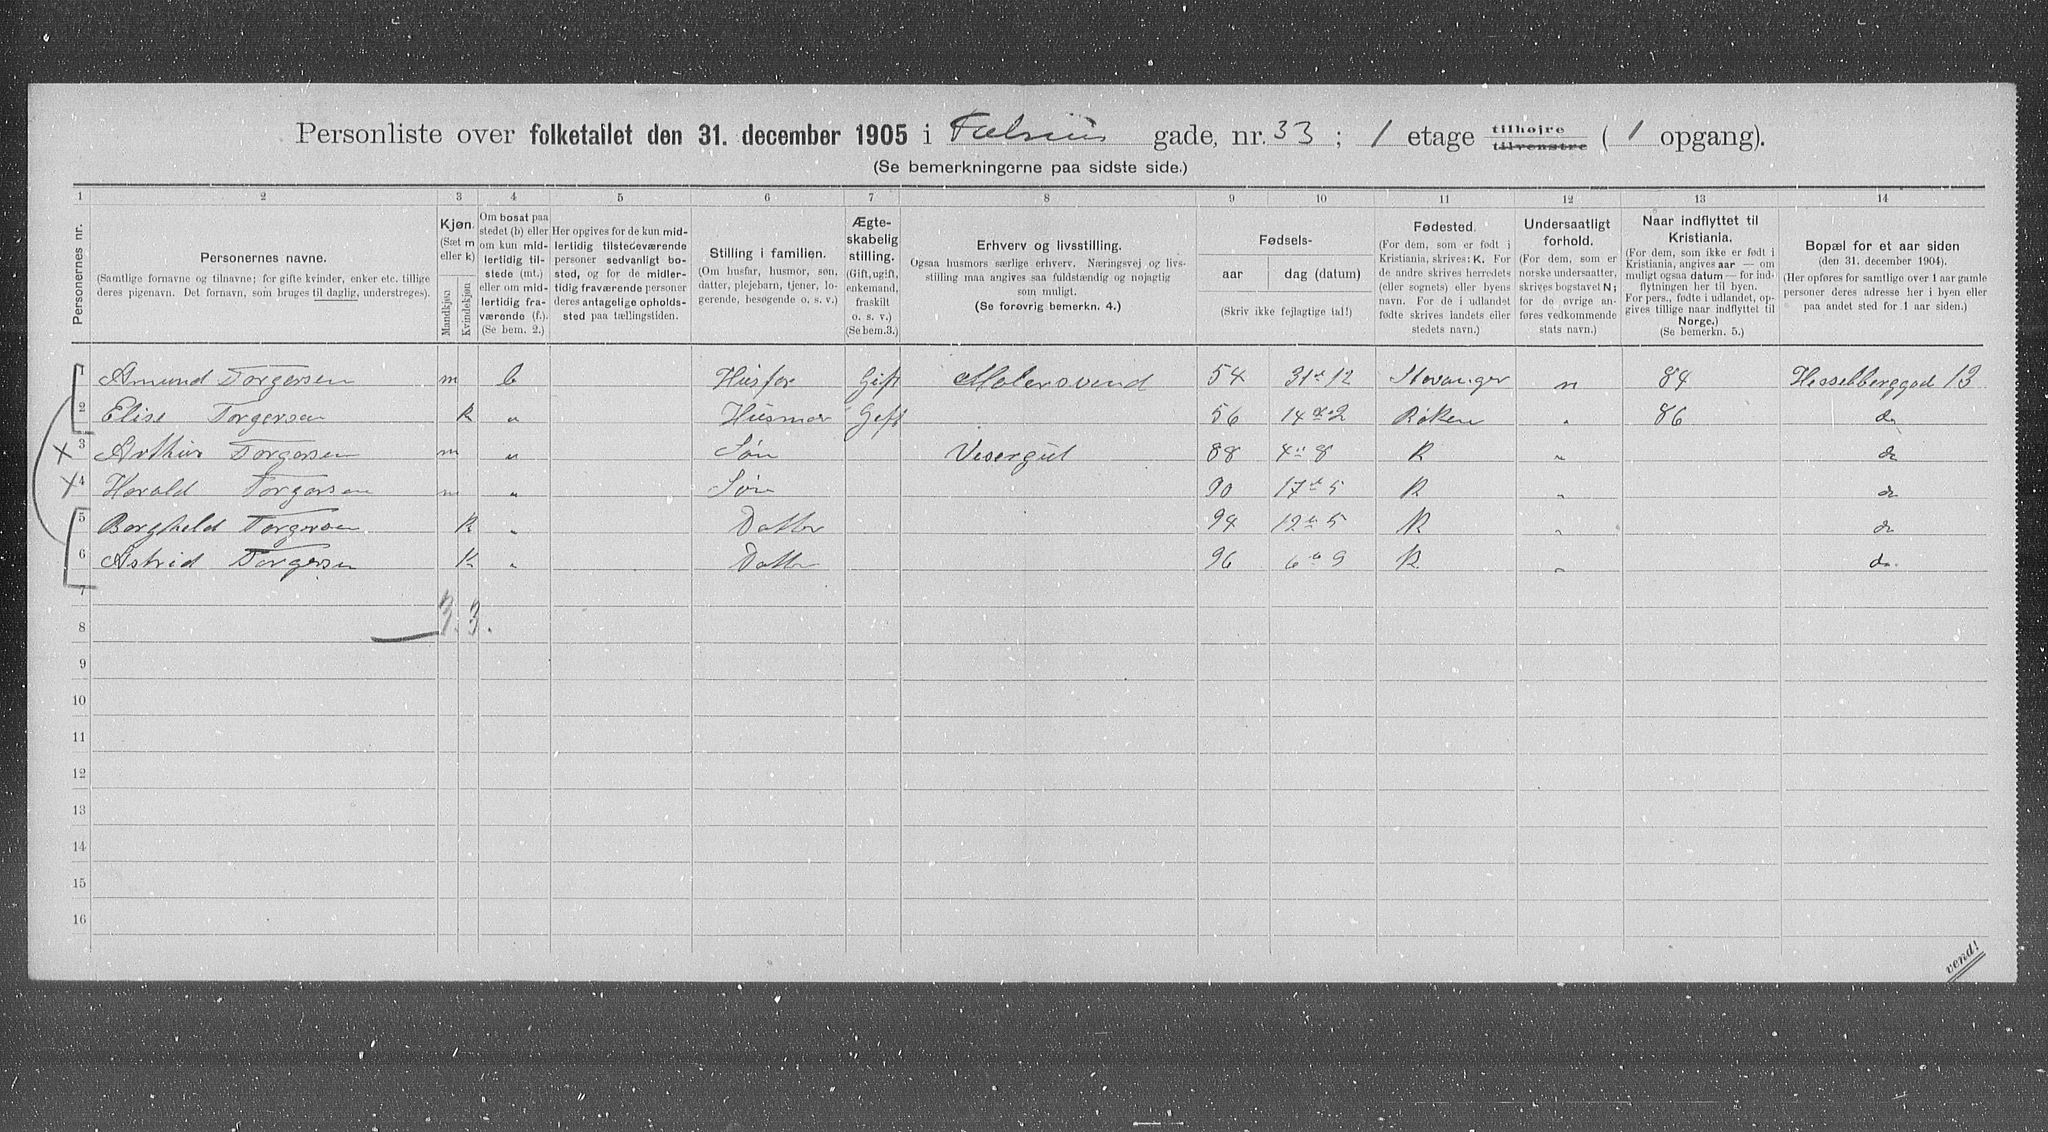 Personliste over folketallet den 31. december 1905 i Falsens gade, nr. 33 ; 1 etage tilhøjre tilvenstre ( 1 opgang).
(Se bemerkningerne paa sidste side.)
1 2 3 4 5 6 7 8 9 10 11 12 13 14
Personernes nr.
Personernes navne.
(Samtlige fornavne og tilnavne; for gifte kvinder, enker etc. tillige
deres pigenavn. Det fornavn, som bruges til daglig, understreges).
Kjøn.
(Sæt m
eller k)
Mandkjøn
Kvindekjøn
Om bosat paa
stedet (b) eller
om kun mid-
lertidig til-
stede (mt.)
eller om mid-
lertidig fra-
værende (f.).
(Se bem. 2.)
Her opgives for de kun mid-
lertidig tilstedeværende
personer sedvanligt bo-
sted, og for de midler-
tidig fraværende personer
deres antagelige opholds-
sted paa tællingstiden.
Stilling i familien.
(Om husfar, husmor, søn,
datter, plejebarn, tjener, lo-
gerende, besøgende o. s. v.)
Ægte-
skabelig
stilling.
(Gift, ugift,
enkemand,
fraskilt
o. s. v.)
(Se bem.3.)
Erhverv og livsstilling.
Ogsaa husmors særlige erhverv. Næringsvej og livs-
stilling maa angives saa fuldstændig og nøjagtig
som muligt.
(Se forøvrig bemerkn. 4.)
Fødsels-
aar
dag (datum)
(Skriv ikke fejlagtige tal!)
Fødested.
(For dem, som er født i
Kristiania, skrives: K. For
de andre skrives herredets
(eller sognets) eller byens
navn. For de i udlandet
fødte skrives landets eller
stedets navn.)
Undersaatligt
forhold.
(For dem, som er
norske undersaatter,
skrives bogstavet N;
for de øvrige an-
føres vedkommende
stats navn.)
Naar indflyttet til
Kristiania.
(For dem, som ikke er født i
Kristiania, angives aar — om
muligt ogsaa datum — for ind-
flytningen her til byen.
For pers., født i udlandet, op-
gives tillige naar indflyttet til
Norge.)
(Se bemerkn. 5.)
Bopæl for et aar siden
(den 31. december 1904).
(Her opføres for samtlige over 1 aar gamle
personer deres adresse her i byen eller
paa andet sted for 1 aar siden.)
1 Amund Torgersen m b Husfar Gift Malersvend 54 31te 12 Stavanger n 84 Hesselberggad 13
2 Elise Torgersen K " Husmor Gift 56 14de 2 Røken " 86 do
X 3 Arthur Torgersen m " Søn Visergut 88 4de 8 K " do
X 4 Harald Torgersen m " Søn 90 17de 5 K " do
5 Borghild Torgersen K " Datter 94 12te 5 K " do
6 Astrid Torgersen K " Datter 96 6te 9 K " do.
7
8 3. 3.
9
10
11
12
13
14
15
16
vend!